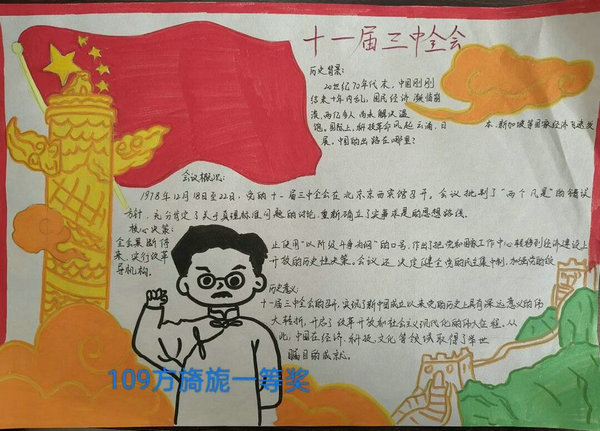 十一届三中全会
历史背景:
20世纪70年代末,中国刚刚
结束十年内乱,国民经济濒临崩
溃,两亿多人尚未解决温
饱。国际上,新技革命风起云涌,日
本、新加坡等国家经济飞速发
展。中国的出路在哪里?
会议概况:
1978年12月18日至22日,党的十一届三中全会在北京京西宾馆召开。会议批判了"两个凡是"的错误
方针,充分肯定了关于真理标准问题的讨论,重新确立了实事求是的思想路线。
核心决策:
全会果断停
止使用"以阶级斗争为纲"的口号,作出了把党和国家工作中心转移到经济建设上
来,实行改革
开放的历史性决策。会议还决定健全党的民主集中制,加强党的领
导机构。
历史意义:
十一届三中全会的召开,实现了新中国成立以来党的历史上具有深远意义的伟
大转折,开启了改革开放和社会主义现代化的伟大征程。从
此,中国在经济、科技、文化等领域取得了举世
瞩目的成就。
109方旖旎一等奖